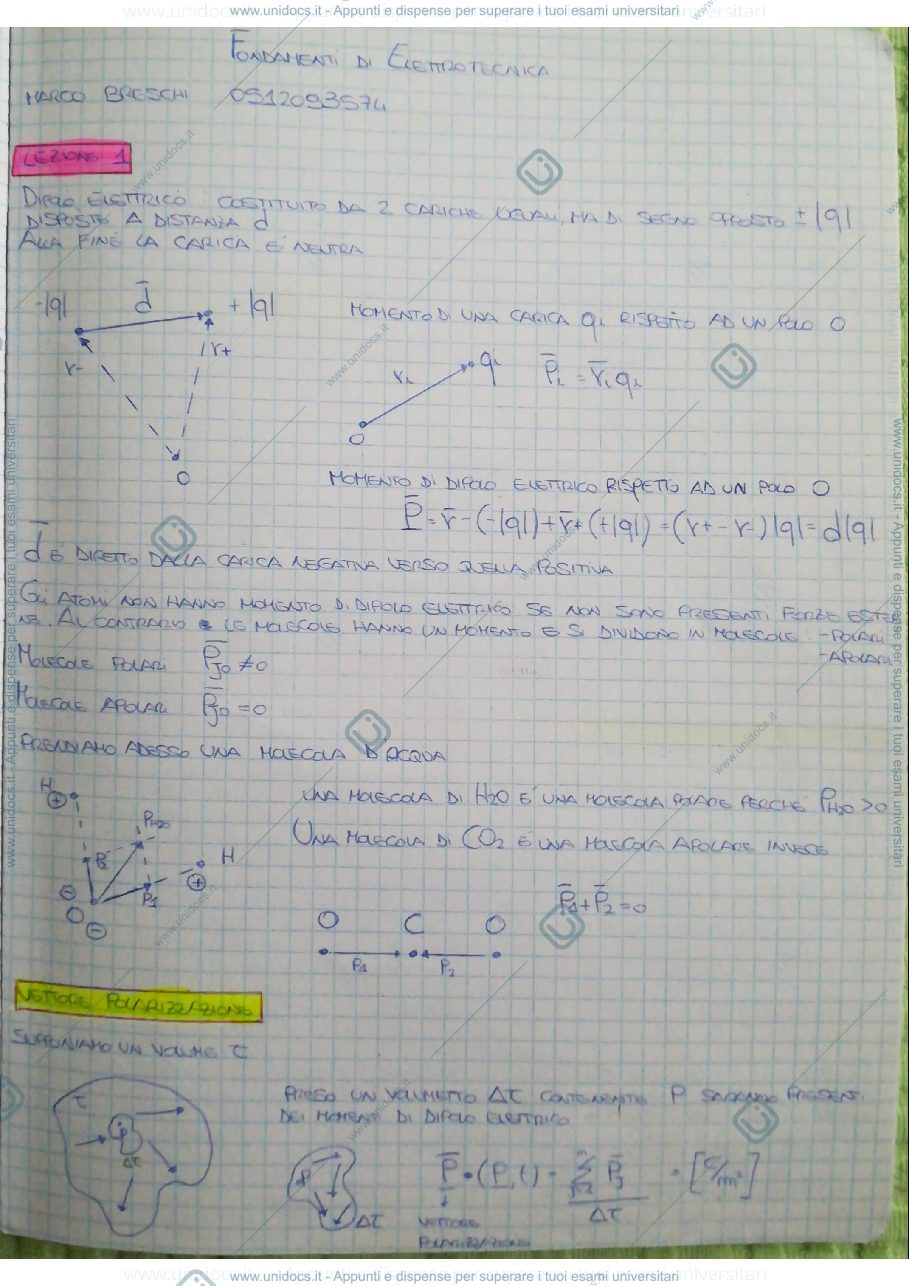 www.unidocs.it - Appunti e dispense per superare i tuoi esami universitari
FONDAMENTI DI ELETTROTECNICA
MARCO BRESCHI 0512093574
LEZIONE 1
DIPOLO ELETTRICO COSTITUITO DA 2 CARICHE UGUALI, MA DI SEGNO OPPOSTO ±|q|
DISPOSTE A DISTANZA d
ALLA FINE LA CARICA È NEUTRA
-|q| d̅ +|q|
MOMENTO DI UNA CARICA qi RISPETTO AD UN POLO O
r- r+
O
ri qi
O
P̅i = r̅i qi
MOMENTO DI DIPOLO ELETTRICO RISPETTO AD UN POLO O
P̅ = r̅-(-|q|) + r̅+(+|q|) = (r+ - r-)|q| = d|q|
d̅ È DIRETTO DALLA CARICA NEGATIVA VERSO QUELLA POSITIVA
GLI ATOMI NON HANNO MOMENTO DI DIPOLO ELETTRICO SE NON SONO PRESENTI FORZE ESTER
NE. AL CONTRARIO LE MOLECOLE HANNO UN MOMENTO E SI DIVIDONO IN MOLECOLE: -POLARI
-APOLARI
MOLECOLE POLARI P̅jo ≠ 0
MOLECOLE APOLARI P̅jo = 0
PRENDIAMO ADESSO UNA MOLECOLA D'ACQUA
H ⊕
PH2O
P2
P1
H ⊕
⊖
O ⊖
UNA MOLECOLA DI H2O È UNA MOLECOLA POLARE PERCHÉ P̅H2O > 0
UNA MOLECOLA DI CO2 È UNA MOLECOLA APOLARE INVECE
P̅1 + P̅2 = 0
O C O
P1 P2
VETTORE POLARIZZAZIONE
SUPPONIAMO UN VOLUME τ
τ
P
Δτ
PRESO UN VOLUMETTO Δτ CONTENENTE P SARANNO PRESENTI
DEI MOMENTI DI DIPOLO ELETTRICO
P
Δτ
P̅ (P,t) = Σ P̅j / Δτ = [C/m²]
VETTORE
POLARIZZAZIONE
www.unidocs.it - Appunti e dispense per superare i tuoi esami universitari